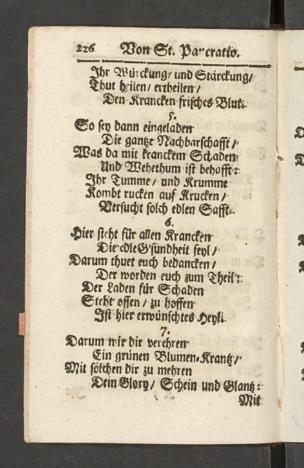 226 Von St. Pancratio.
Ihr Würckung/ und Stärckung/
Thut heilen/ ertheilen/
Den Krancken frisches Blut.
5.
So sey dann eingeladen
Die gantze Nachbarschafft/
Was da mit kranckem Schaden
Und Wehethum ist behafft:
Ihr Tumme/ und Krumme
Kombt rucken auf Krucken/
Versucht solch edlen Safft.
6.
Hier steht für allen Krancken
Die edle Gsündheit feyl/
Darum thuet euch bedancken/
Der worden euch zum Theil:
Der Laden für Schaden
Steht offen/ zu hoffen
Ist hier erwünschtes Heyl.
7.
Darum wir dir verehren
Ein grünen Blumen-Krantz/
Mit solchen dir zu mehren
Dein Glory/ Schein und Glantz:
Mit